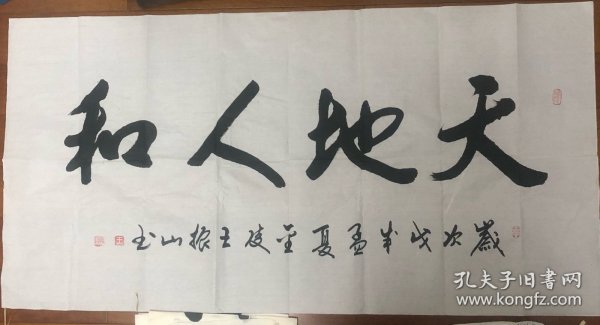 天地人和
歲次戊戌孟夏王振山书
孔夫子旧书网
www.kongfz.com